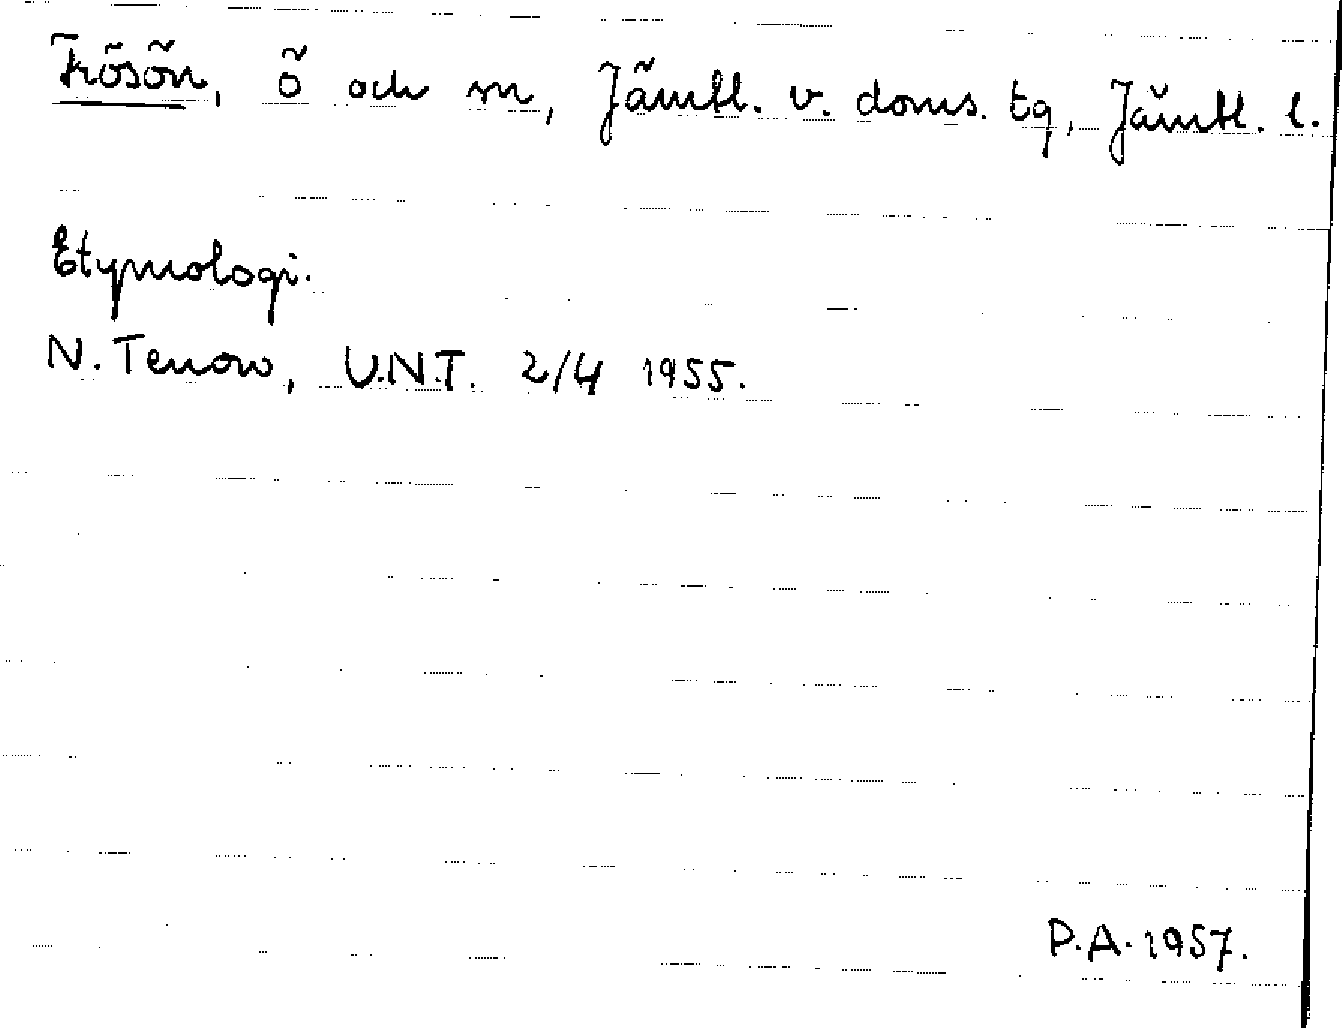 Frösön, ö och sn, Jämtl. v. doms. tg, Jämtl. l.
Etymologi.
N. Tenow, U.N.T. 2/4 1955.
P.A. 1957.